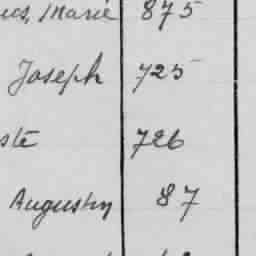 Marie 875
Joseph 725
ste 726
Augustin 87